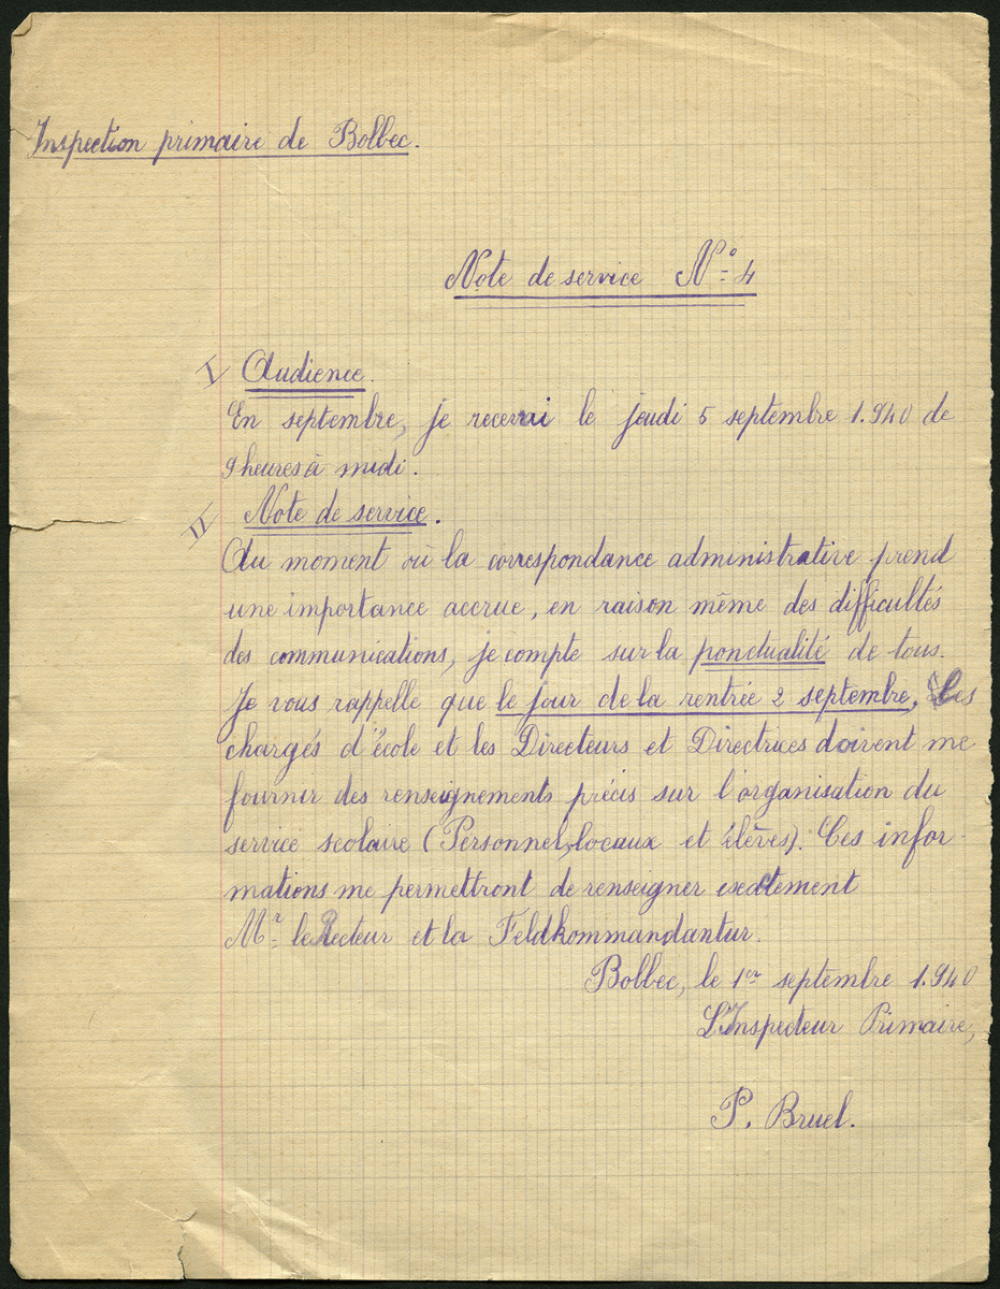 Inspection primaire de Bolbec.
Note de service N° 4
I Audience.
En septembre, je recevrai le jeudi 5 septembre 1.940 de
9 heures à midi.
II Note de service.
Au moment où la correspondance administrative prend
une importance accrue, en raison même des difficultés
des communications, je compte sur la ponctualité de tous.
Je vous rappelle que le jour de la rentrée 2 septembre, les
chargés d'école et les Directeurs et Directrices doivent me
fournir des renseignements précis sur l'organisation du
service scolaire (Personnel, locaux et élèves). Ces infor-
mations me permettront de renseigner exactement
Mr. le Recteur et la Feldkommandantur.
Bolbec, le 1er septembre 1.940
L'Inspecteur Primaire,
P. Bruel.